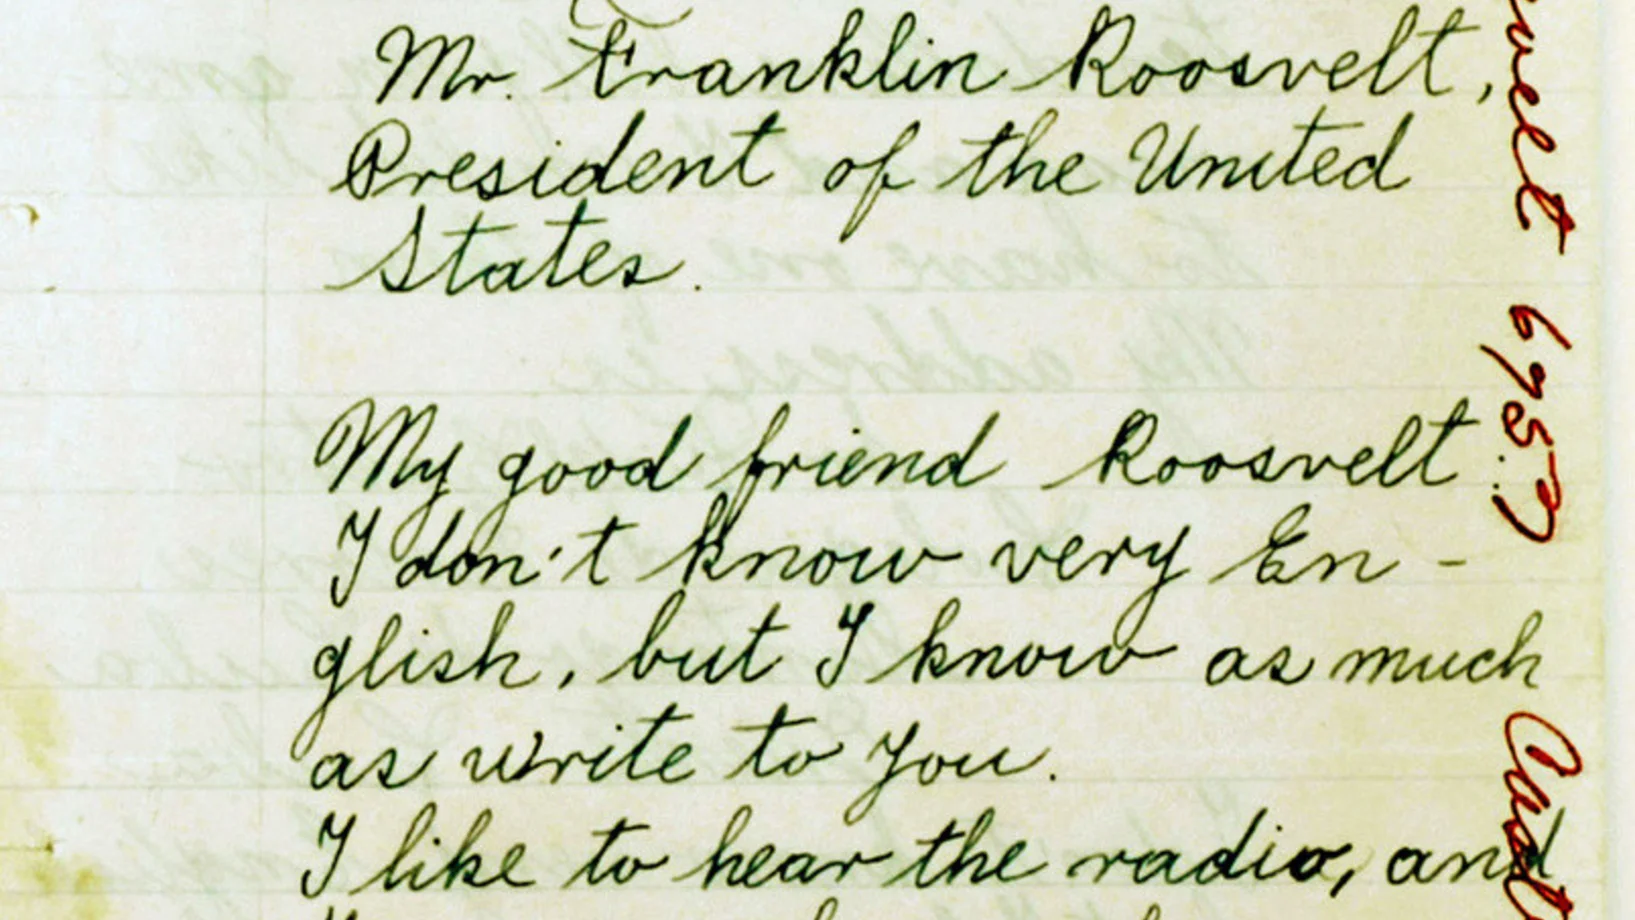 Mr. Franklin Roosvelt,
President of the United
States.
My good friend Roosvelt
I don't know very En-
glish, but I know as much
as write to you.
I like to hear the radio, and